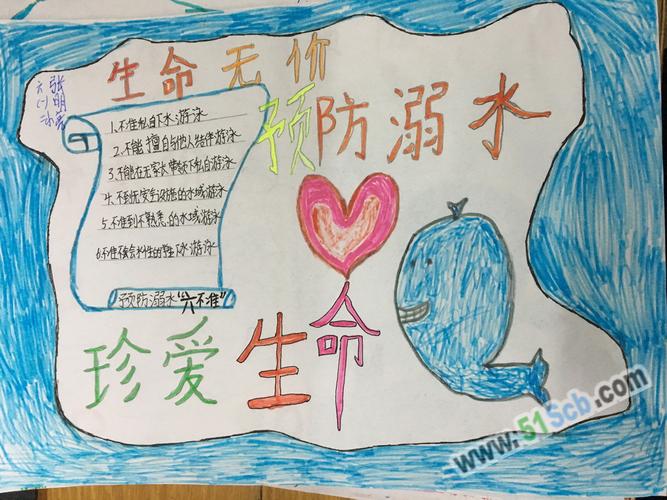 生命无价
预防溺水
六(一)
张明
1.不准私自下水游泳
2.不能擅自与他人结伴游泳
3.不能在无家长带领下私自游泳
4.不到无安全设施的水域游泳
5.不准到不熟悉的水域游泳
6.不准不会水性的学生下水游泳
预防溺水“六不准”
珍爱生命
www.51Scb.com